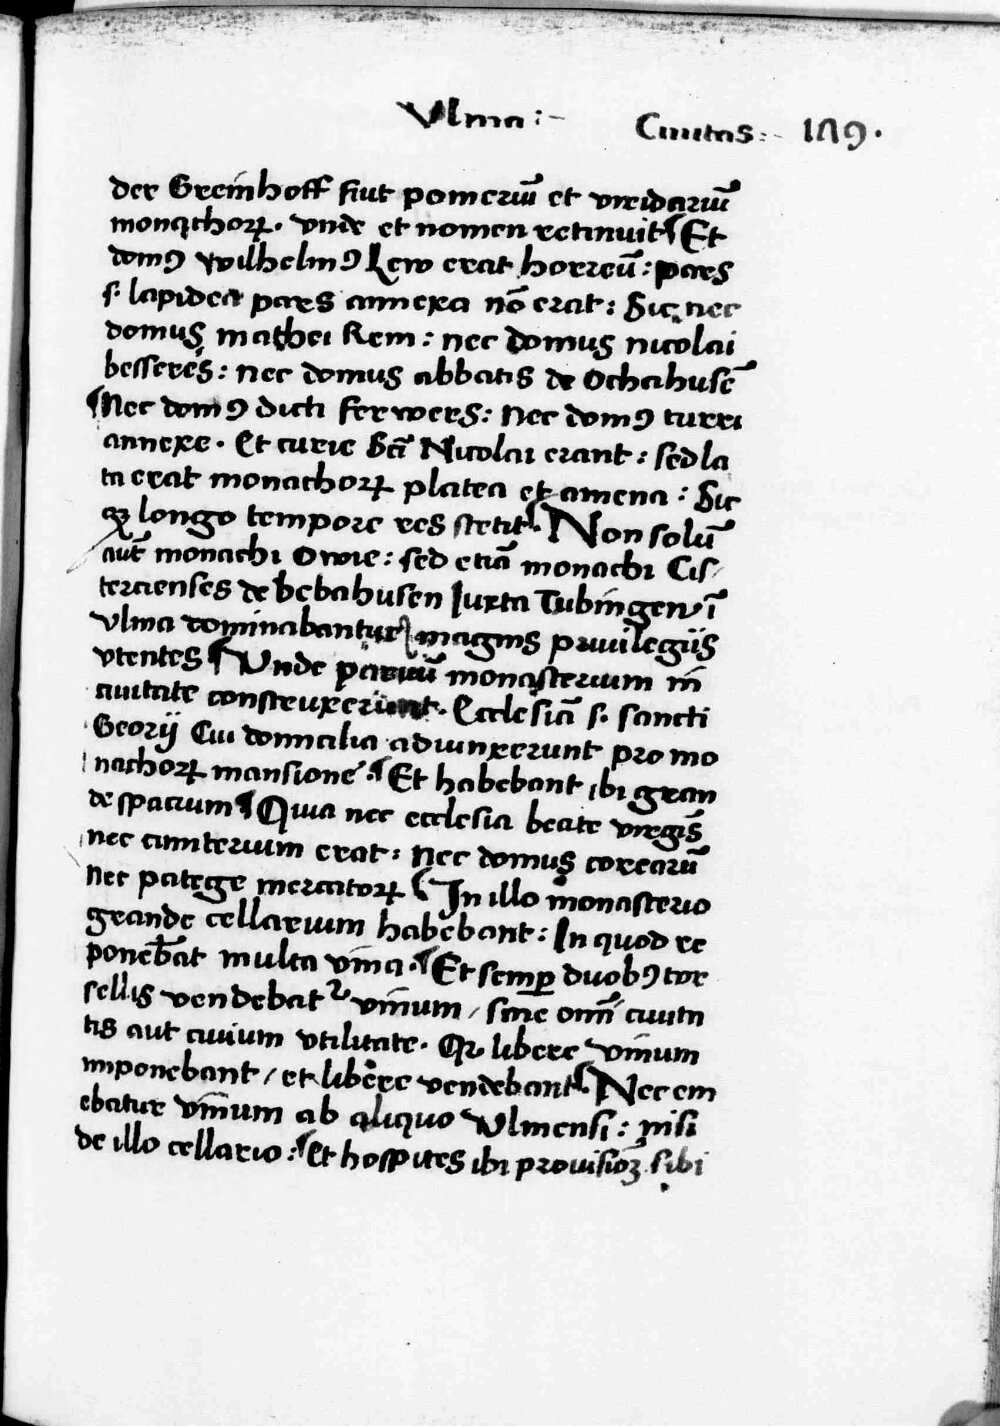 Vlma :- Ciuitas :- 189.
der Greinhoff fiut pomeriũ et viridariũ
monachorꝝ. vnde et nomen retinuit ¶ Et
domꝰ wilhelmꝰ Lew erat horreũ : pars
s. lapidea pars annexa nõ erat : Sic nec
domus mathei Rem : nec domus nicolai
besseres : nec domus abbatis de Ochahusẽ
¶ Nec domꝰ dicti ferwers : nec domꝰ turri
annexe. Et curie Sc̃i Nicolai erant : sed la
ta erat monachorꝝ platea et amena : Sic
qꝫ longo tempore res stetit. ¶ Non solũ
aut̃ monachi Owie : sed etiã monachi Cis/
tercienses de bebahusen Iuxta Tubingen ĩ
vlma dominabantur magnis priuilegijs
vtentes ¶ Vnde paruũ monasterium in
ciuitate construxerunt. Ecclesiã s. sancti
Georij Cui domicilia adiunxerunt pro mo
nachorꝝ mansione. ¶ Et habebant ibi gran
de spacium ¶ Quia nec ecclesia beate virgĩs
nec cimiterium erat : nec domus coreariũ
nec patege mercatorꝝ ¶ In illo monasterio
grande cellarium habebant : In quod re
poneb̃at multa vina. ¶ Et semꝑ duobꝰ tor
sellis vendebat᷑ vinum / sine omĩ ciuita
tis aut ciuium vtilitate. Qꝫ libere vinum
imponebant / et libere vendebant ¶ Nec em
ebatur vinum ab aliquo Vlmensi : nisi
de illo cellario : ¶ Et hospites ibi prouisioꝫ sibi